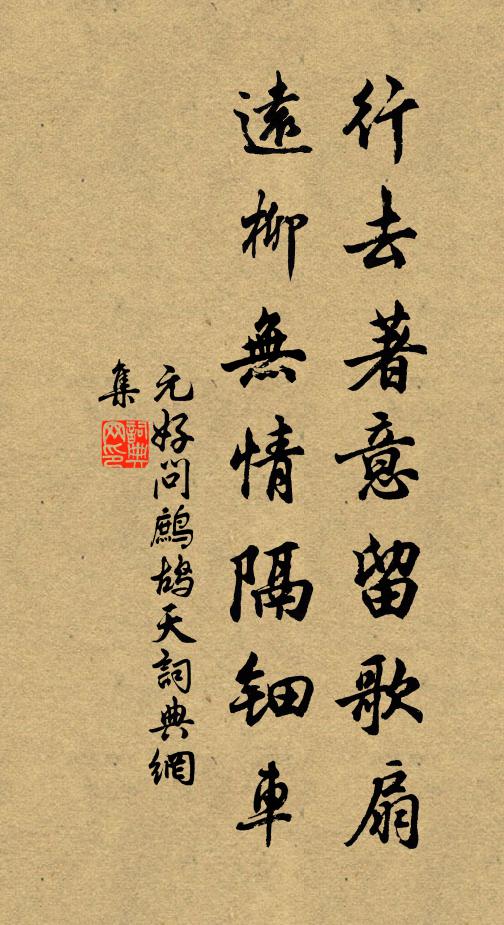 行去著意留歌扇
遠柳無情隔鈿車
元好問鷓鴣天詞典網
集
詞典網印